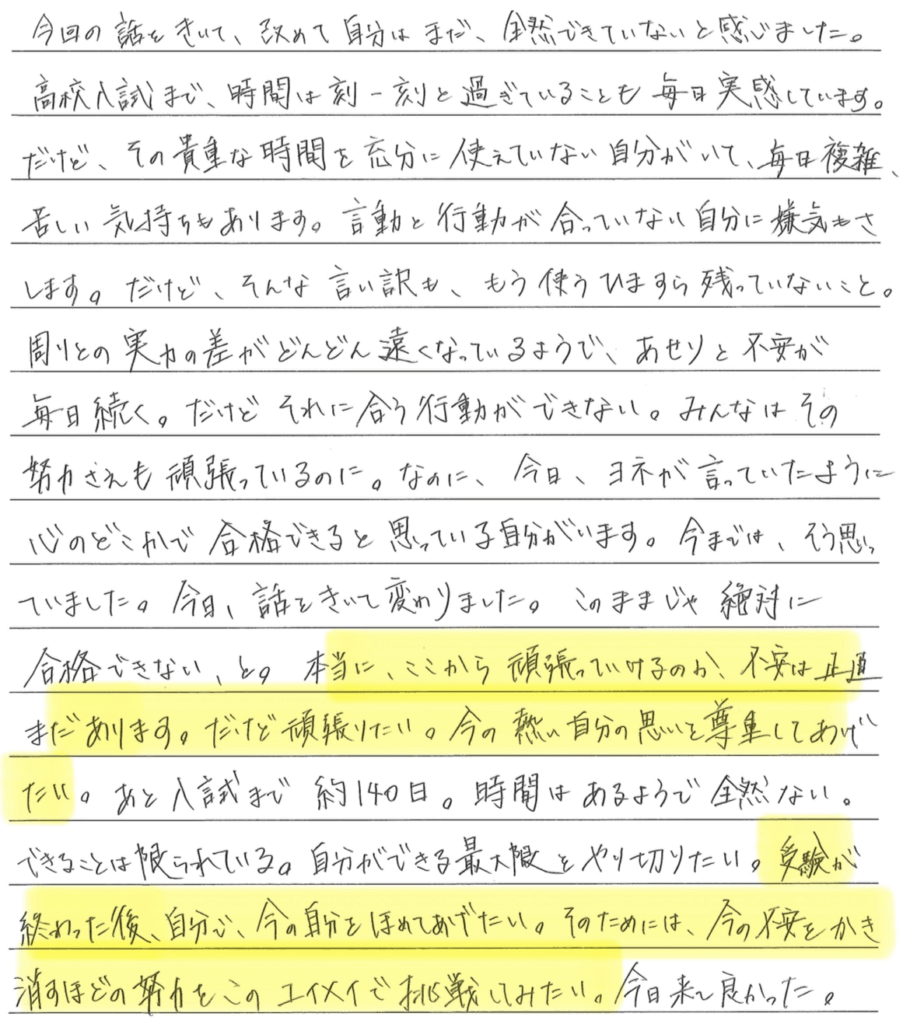 今回の話をきいて、改めて自分はまだ、全然できていないと感じました。
高校入試まで、時間は刻一刻と過ぎていることも毎日実感しています。
だけど、その貴重な時間を充分に使えていない自分がいて、毎日複雑、
苦しい気持ちもあります。言動と行動が合っていない自分に嫌気もさ
します。だけど、そんな言い訳も、もう使うひますら残っていないこと。
周りとの実力の差がどんどん遠くなっているようで、あせりと不安が
毎日続く。だけどそれに合う行動ができない。みんなはその
努力さえも頑張っているのに。なのに、今日、ヨネが言っていたように
心のどこかで合格できると思っている自分がいます。今までは、そう思っ
ていました。今日、話をきいて変わりました。このままじゃ絶対に
合格できない、と。本当に、ここから頑張っていけるのか、不安は正直
まだあります。だけど頑張りたい。今の熱い自分の思いを尊重してあげ
たい。あと入試まで約140日。時間はあるようで全然ない。
できることは限られている。自分ができる最大限をやり切りたい。受験が
終わった後、自分で、今の自分をほめてあげたい。そのためには、今の不安をかき
消すほどの努力をこのユイメイで挑戦してみたい。今日来て良かった。